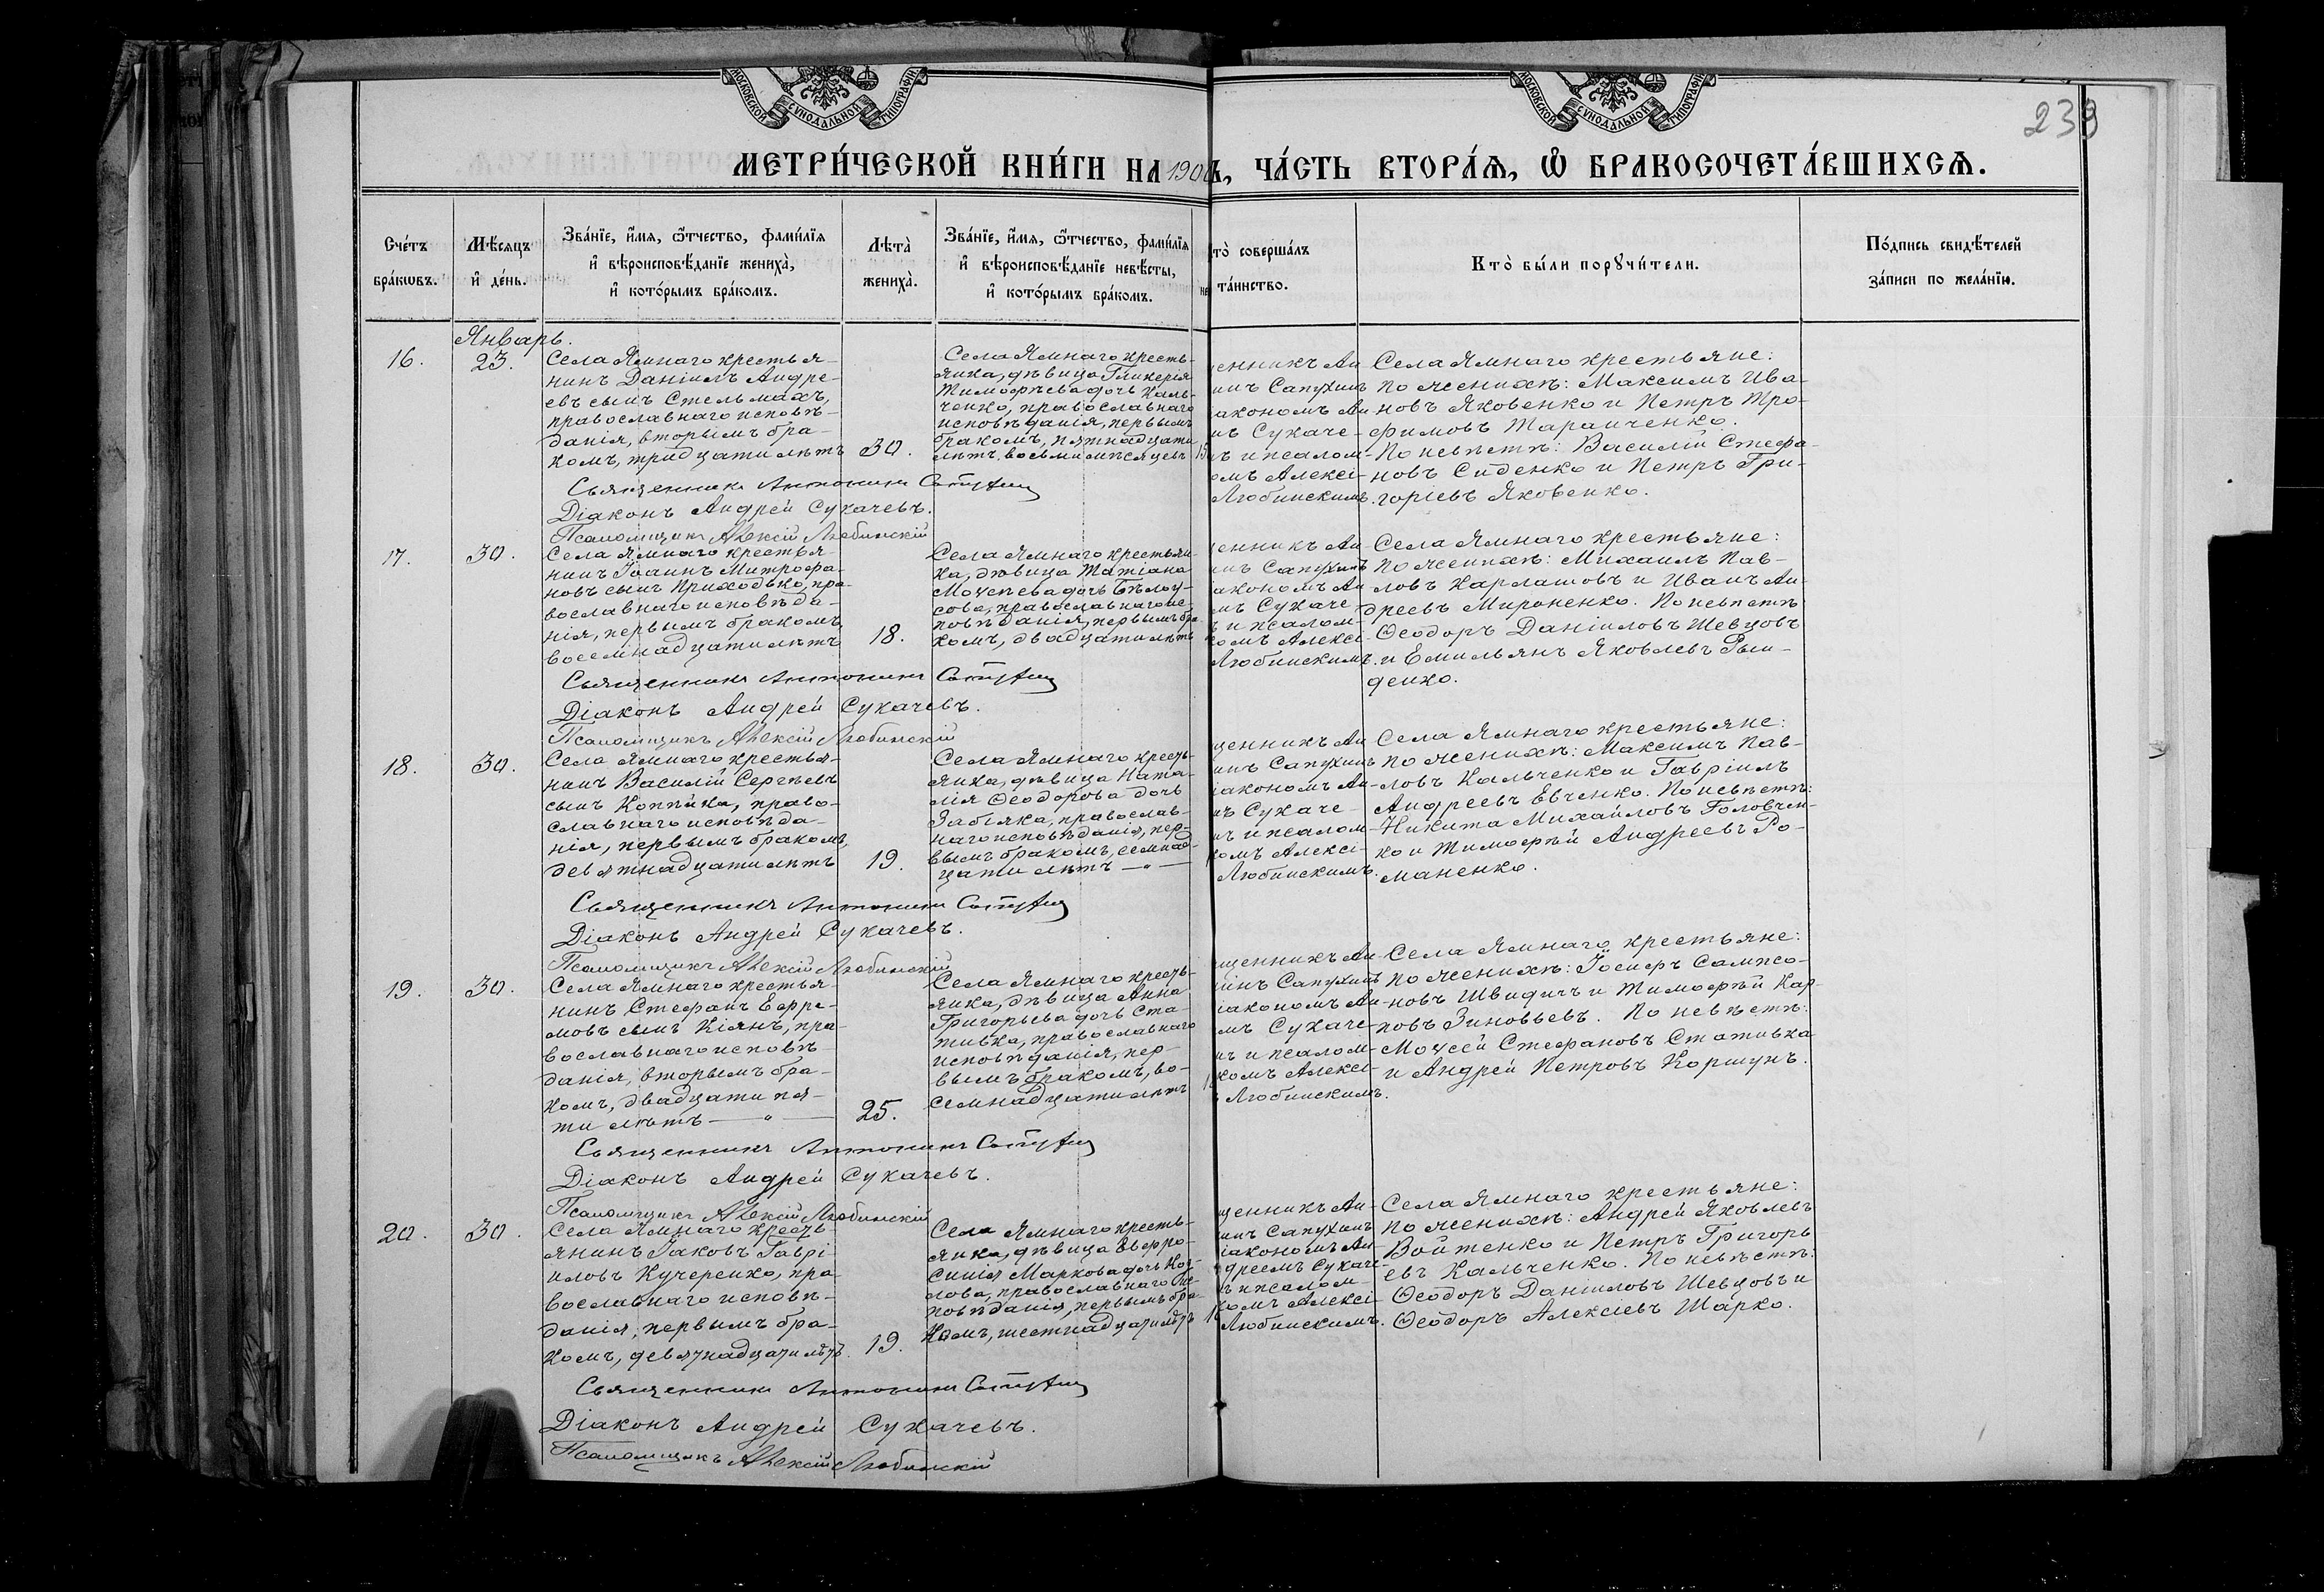 МОСКОВСКОЙ СѴНОДАЛЬНОЙ ТИПОГРАФІИ
МОСКОВСКОЙ СѴНОДАЛЬНОЙ ТИПОГРАФІИ
239
МЕТРИ́ЧЕСКОЙ КНИ́ГИ НА 190
Ъ, ЧА́СТЬ ВТОРА́Ѧ, Ѽ БРАКОСОЧЕТА́ВШИХСѦ.
Сче́тъ бра́кѡвъ.
Мѣ́сѧцъ и҆ де́нь.
Зва́нїе, и҆́мѧ, ѻ҆́тчество, фами́лїѧ и҆ вѣроисповѣ́данїе жениха̀, и҆ кото́рымъ бра́комъ.
Лѣ́та̀ жениха̀.
Зва́нїе, и҆́мѧ, ѻ҆́тчество, фами́лїѧ и҆ вѣроисповѣ́данїе невѣ́сты, и҆ кото́рымъ бра́комъ.
то̀ соверша́лъ та́инство.
Кто̀ бы́ли порꙋчи́тели.
По́дпись свидѣ́телей за́писи по жела́нїю.
Январь.
16.
23.
Села Ямнаго крестья-
нинъ Даніилъ Андре-
евъ сынъ Стельмахъ,
православнаго исповѣ-
данія, вторымъ бра-
комъ, тридцати лѣтъ
30.
Села Ямнаго кресть-
янка, дѣвица Гликерія
Тимофѣева дочь Каль-
ченко, православнаго
исповѣданія, первымъ
бракомъ, пятнадцати
лѣтъ, восьми мѣсяцевъ
15
енникъ Ан
инъ Сапухинъ
акономъ Ан
мъ Сукаче-
ъ и псалом-
омъ Алексі-
Любинскимъ.
Села Ямнаго крестьяне:
по женихѣ: Максимъ Ива-
новъ Яковенко и Петръ Тро-
фимовъ Таранченко.
По невѣстѣ: Василій Стефа-
новъ Сиденко и Петръ Гри-
горіевъ Яковенко.
Священникъ Антонинъ Сапухин
Діаконъ Андрей Сукачевъ.
Псаломщикъ Алексій Любинскій
17.
30.
Села Ямнаго крестья-
нинъ Іоаннъ Митрофа-
новъ сынъ Приходько, пра-
вославнаго исповѣда-
нія, первымъ бракомъ,
восемнадцати лѣтъ
18.
Села Ямнаго крестьян-
ка, дѣвица Татіана
Моисеева дочь Бѣлоу-
сова, православнаго ис-
повѣданія, первымъ бра-
комъ, двадцати лѣтъ
енникъ Ан
инъ Сапухинъ
акономъ Ан
мъ Сукаче-
ъ и псалом-
омъ Алексі-
Любинскимъ.
Села Ямнаго крестьяне:
по женихѣ: Михаилъ Пав-
ловъ Карлашовъ и Иванъ Ан-
дреевъ Мироненко. По невѣстѣ
Ѳеодоръ Даніиловъ Шевцовъ
и Емильянъ Яковлевъ Рын-
денко.
Священникъ Антонинъ Сапухин
Діаконъ Андрей Сукачевъ.
Псаломщикъ Алексій Любинскій
18.
30.
Села Ямнаго крестья-
нинъ Василій Сергѣевъ
сынъ Коппѣйка, право-
славнаго исповѣда-
нія, первымъ бракомъ,
девятнадцати лѣтъ
19.
Села Ямнаго кресть-
янка, дѣвица Ната-
лія Ѳеодорова дочь
Забіяка, православ-
наго исповѣданія, пер-
вымъ бракомъ, семнад-
цати лѣтъ — „ —
щенникъ Ан
инъ Сапухинъ
іакономъ Ан-
мъ Сукаче-
мъ и псалом-
комъ Алексі-
Любинскимъ.
Села Ямнаго крестьяне:
по женихѣ: Максимъ Пав-
ловъ Кальченко и Гавріилъ
Андреевъ Евченко. По невѣстѣ:
Никита Михайловъ Головчен-
ко и Тимофѣй Андреевъ Ро-
маненко.
Священникъ Антонинъ Сапухин
Діаконъ Андрей Сукачевъ.
Псаломщикъ Алексій Любинскій
19.
30.
Села Ямнаго крестья-
нинъ Стефанъ Ефре-
мовъ сынъ Кіянъ, пра-
вославнаго исповѣ-
данія, вторымъ бра-
комъ, двадцати пя-
ти лѣтъ — „ —
25.
Села Ямнаго кресть-
янка, дѣвица Анна
Григорьева дочь Ста-
тивка, православнаго
исповѣданія, пер-
вымъ бракомъ, во-
семнадцати лѣтъ
щенникъ Ан-
инъ Сапухинъ
іакономъ Ан-
мъ Сукаче-
ъ и псалом-
комъ Алексі-
Любинскимъ.
Села Ямнаго крестьяне:
по женихѣ: Іосифъ Сампсо-
новъ Швидичъ и Тимофѣй Кар-
повъ Зиновьевъ. По невѣстѣ:
Моѵсей Стефановъ Стативка
и Андрей Петровъ Коршунъ.
Священникъ Антонинъ Сапухин
Діаконъ Андрей Сукачевъ.
Псаломщикъ Алексій Любинскій
20.
30.
Села Ямнаго кресть-
янинъ Іаковъ Гаврі-
иловъ Кучеренко, пра-
вославнаго исповѣ-
данія, первымъ бра-
комъ, девятнадцати лѣтъ.
19.
Села Ямнаго кресть-
янка, дѣвица Евфро-
синія Маркова дочь Коз-
лова, православнаго ис-
повѣданія, первымъ бра-
комъ, шестнадцати лѣтъ
щенникъ Ан-
инъ Сапухинъ
іакономъ Ан-
дреемъ Сукаче-
ъ и псалом-
комъ Алексі-
Любинскимъ.
Села Ямнаго крестьяне:
по женихѣ: Андрей Яковлевъ
Войтенко и Петръ Григорь
евъ Кальченко. По невѣстѣ:
Ѳеодоръ Даніиловъ Шевцовъ и
Ѳеодоръ Алексіевъ Шарко.
Священникъ Антонинъ Сапухин
Діаконъ Андрей Сукачевъ.
Псаломщикъ Алексій Любинскій